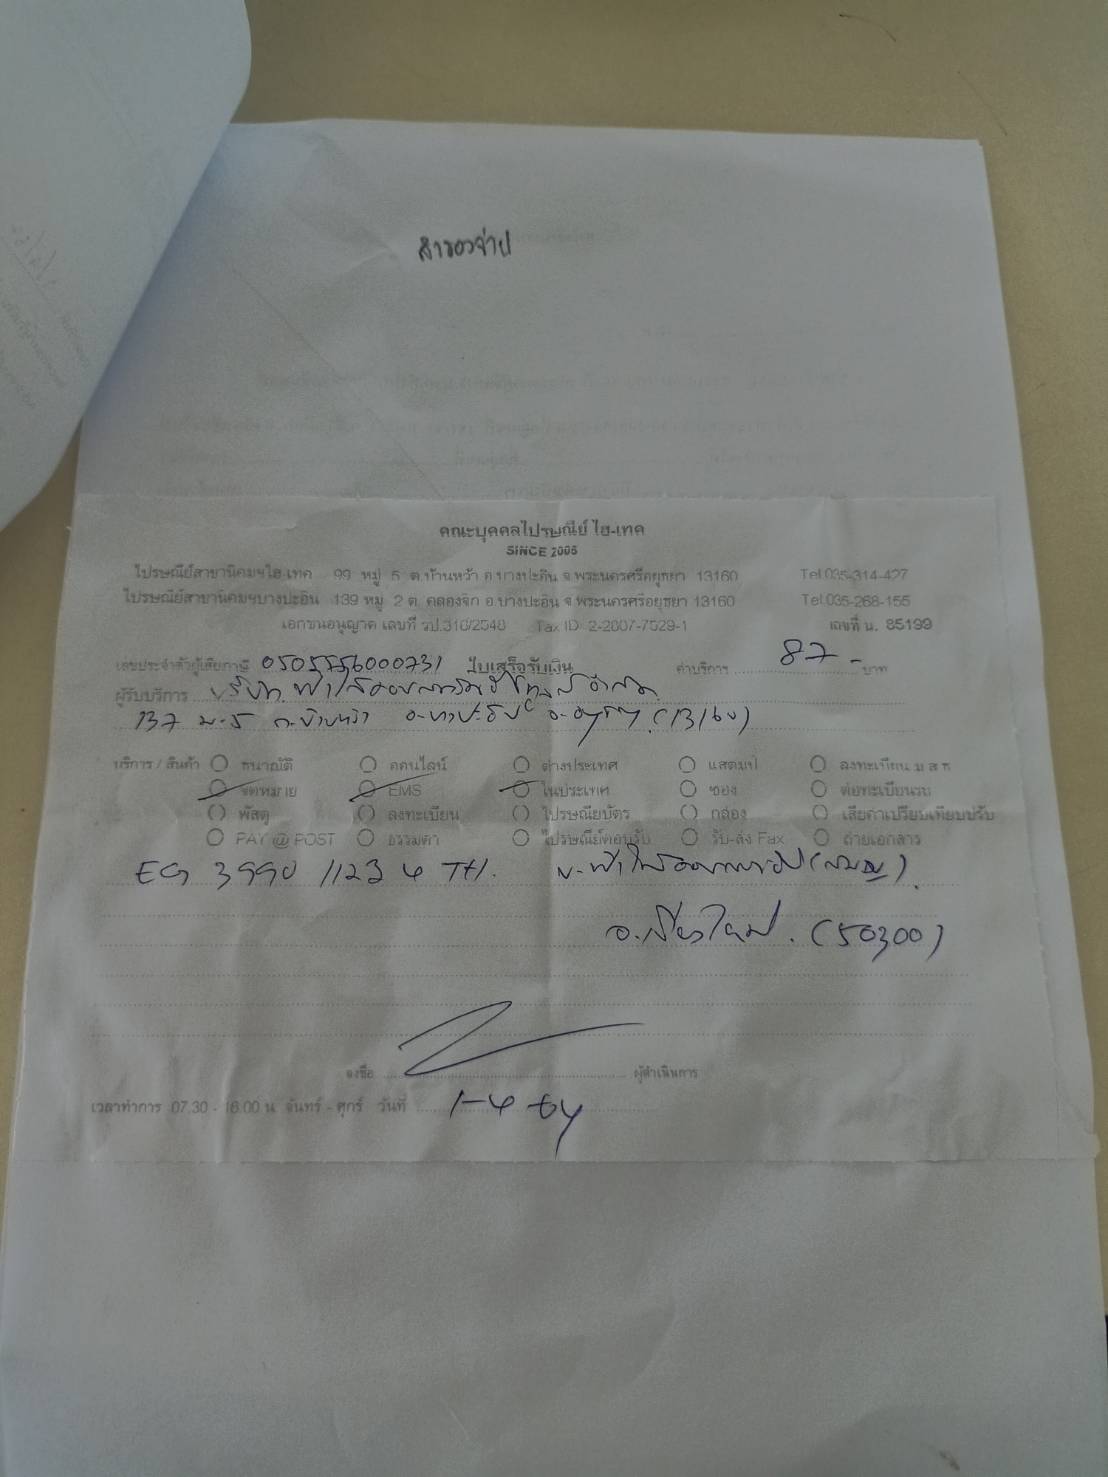 สำรองจ่าย
คณะบุคคลไปรษณีย์ ไฮ-เทค
SINCE 2005
ไปรษณีย์สาขานิคมฯไฮ เทค 99 หมู่ 5 ต.บ้านหว้า อ.บางปะอิน จ.พระนครศรีอยุธยา 13160 Tel.035-314-427
ไปรษณีย์สาขานิคมฯบางปะอิน 139 หมู่ 2 ต. คลองจิก อ.บางปะอิน จ.พระนครศรีอยุธยา 13160 Tel.035-268-155
เอกชนอนุญาต เลขที่ รป.316/2548 Tax ID 2-2007-7529-1 เลขที่ น. 85199
เลขประจำตัวผู้เสียภาษี 0505556000731 ใบเสร็จรับเงิน ค่าบริการ 87.- บาท
ผู้รับบริการ บริษัท จำกัด
137 ม.5 ต.บ้านหว้า อ.บางปะอิน จ.อยุธยา (13160)
บริการ / สินค้า ธนาณัติ ออนไลน์ ต่างประเทศ แสตมป์ ลงทะเบียน ม ส ท
จดหมาย EMS ในประเทศ ซอง ต่อทะเบียนรถ
พัสดุ ลงทะเบียน ไปรษณียบัตร กล่อง เสียค่าเปรียบเทียบปรับ
PAY @ POST ธรรมดา ไปรษณีย์ตอบรับ รับ-ส่ง Fax ถ่ายเอกสาร
EG 3990 1123 4 TH.
จ.เชียงใหม่. (50300)
ลงชื่อ ผู้ดำเนินการ
เวลาทำการ 07.30 - 16.00 น จันทร์ - ศุกร์ วันที่ 1-4-64